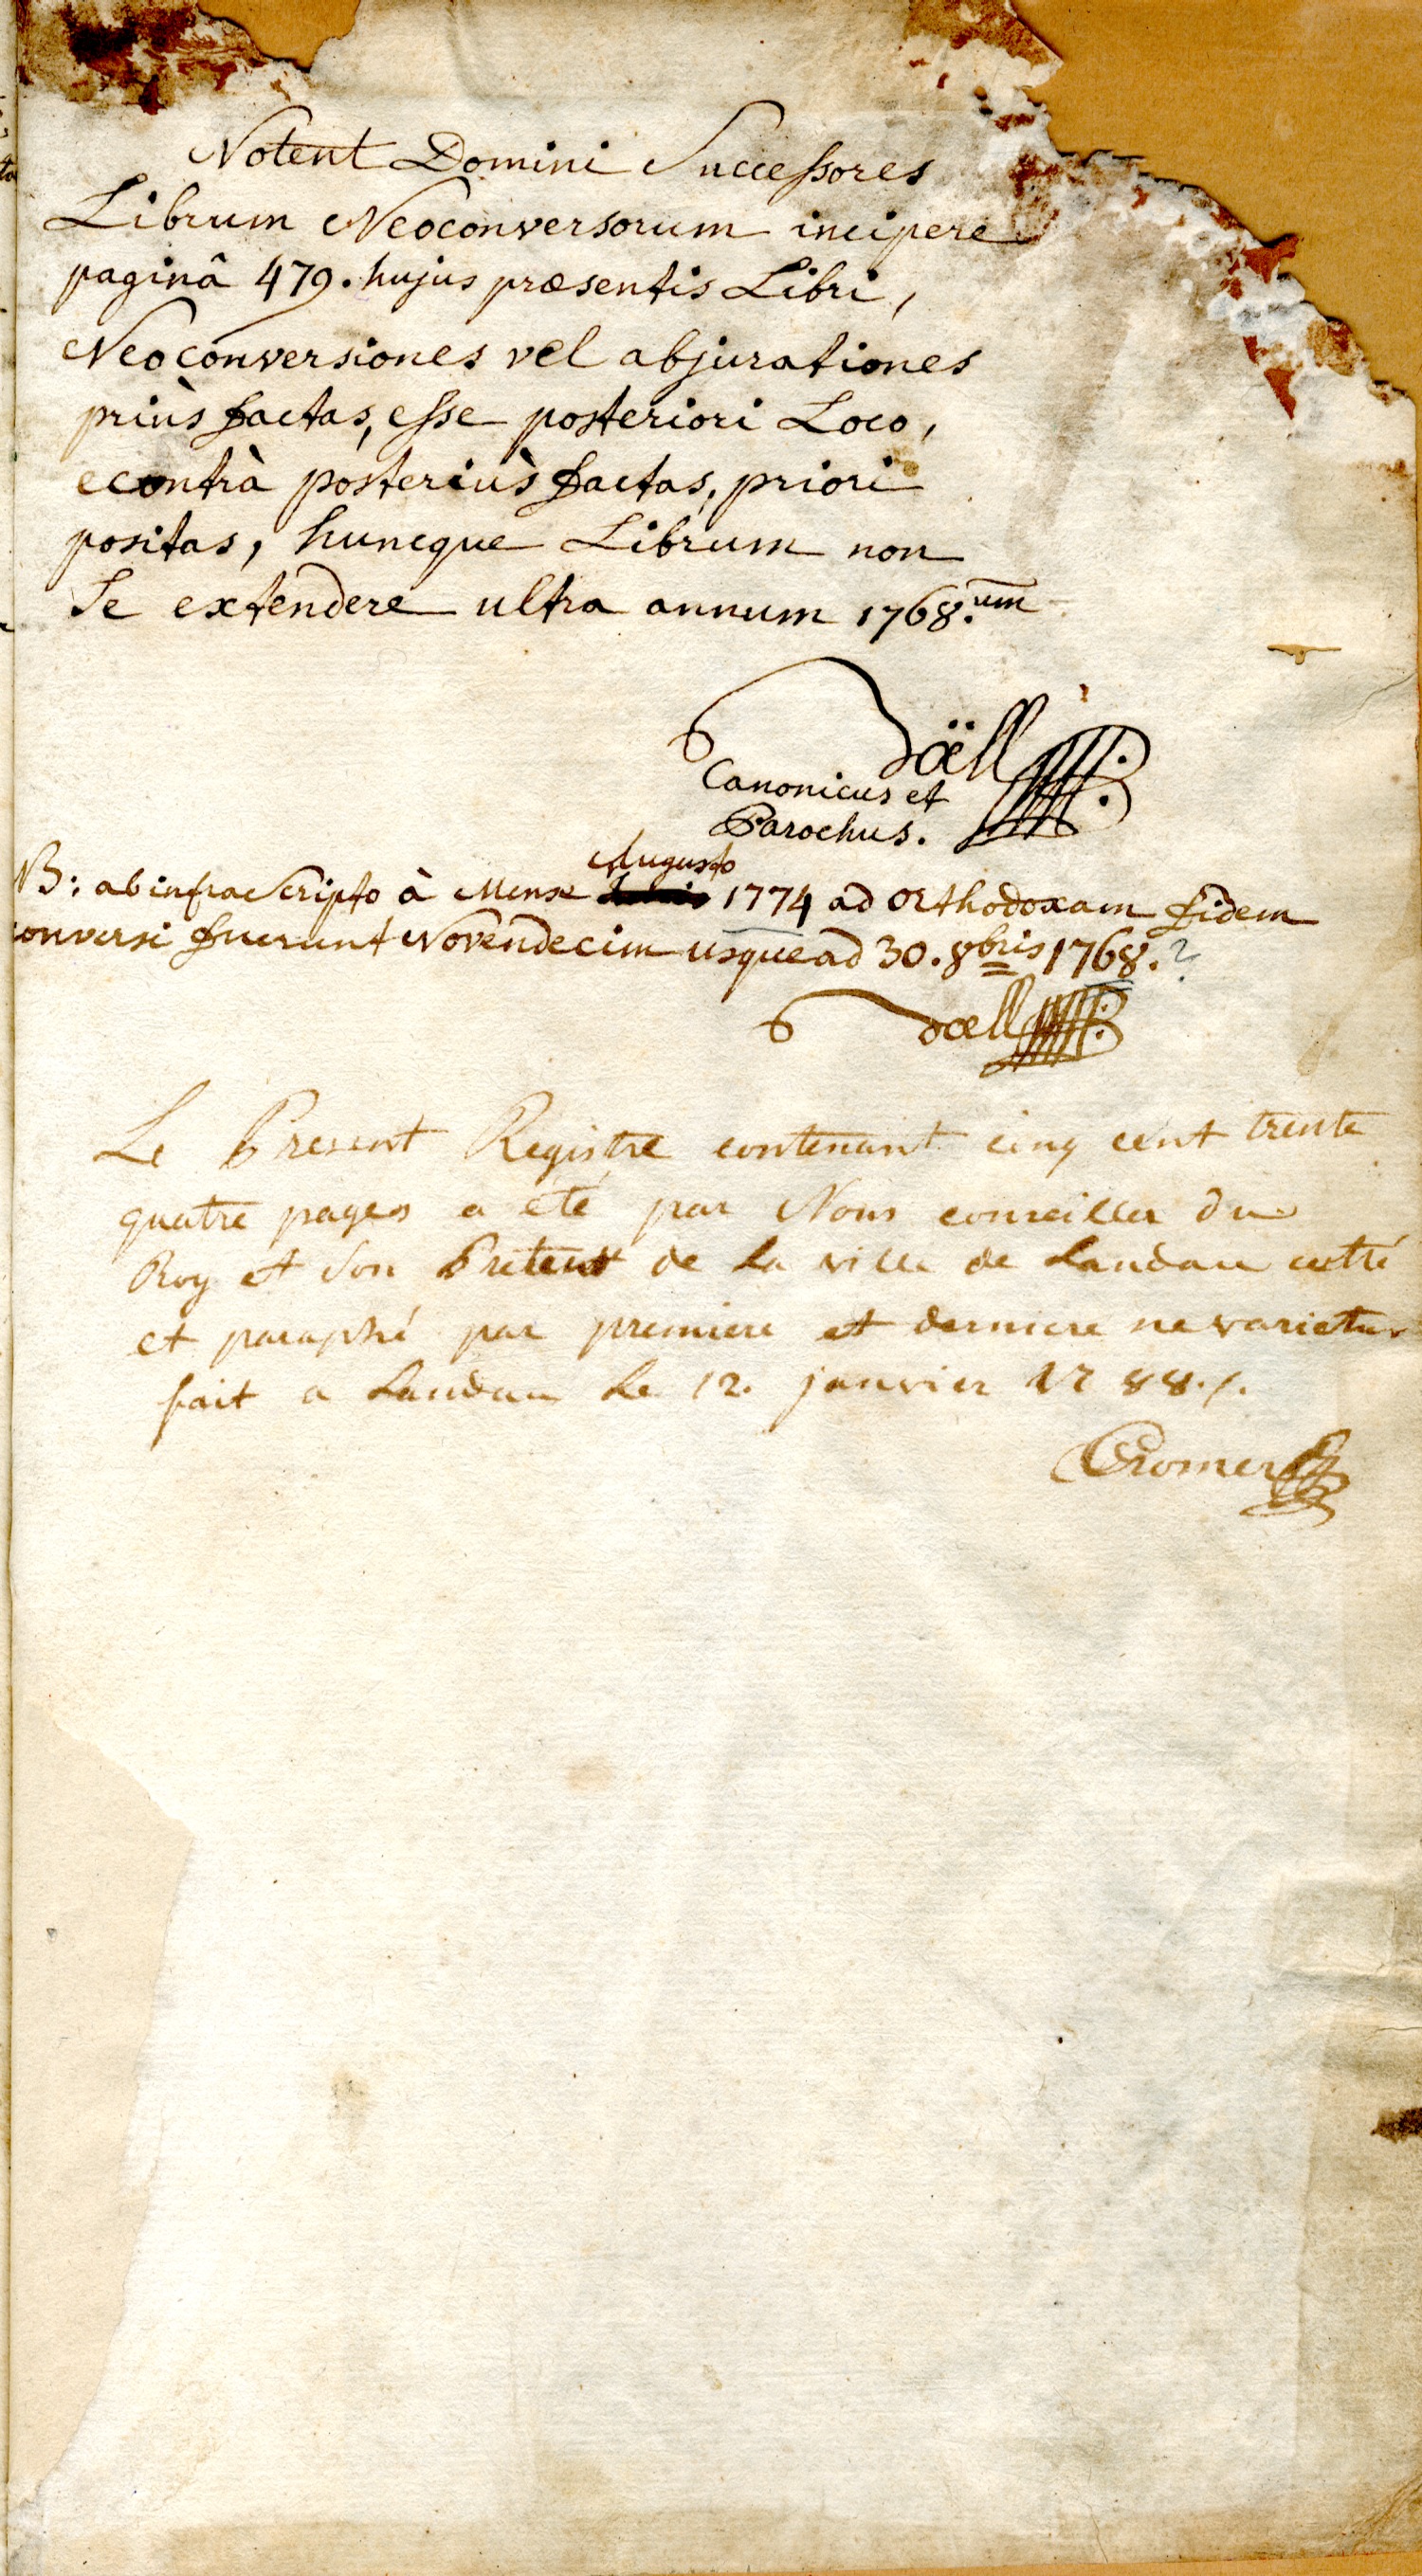 Notent Domini Successores
Librum Neoconversorum incipere
paginâ 479. hujus præsentis Libri,
Neoconversiones vel abjurationes
priùs factas, esse posteriori Loco,
econtrà posteriùs factas, priori
positas, huncque Librum non
se extendere ultra annum 1768.um
Döll
Canonicus et
Parochus.
Augusto
NB: ab infrascripto à Mense 1774 ad Orthodoxam fidem
conversi fuerunt Novendecim usque ad 30. 8bris 1768. ?
Doell
Le Present Registre contenant cinq cent trente
quatre pages a eté par Nous conseiller du
Roy et son Preteur de la ville de Landau cotté
et paraphé par premiere et derniere ne varietur
fait a Landau le 12. janvier 1788 ./.
Cromer